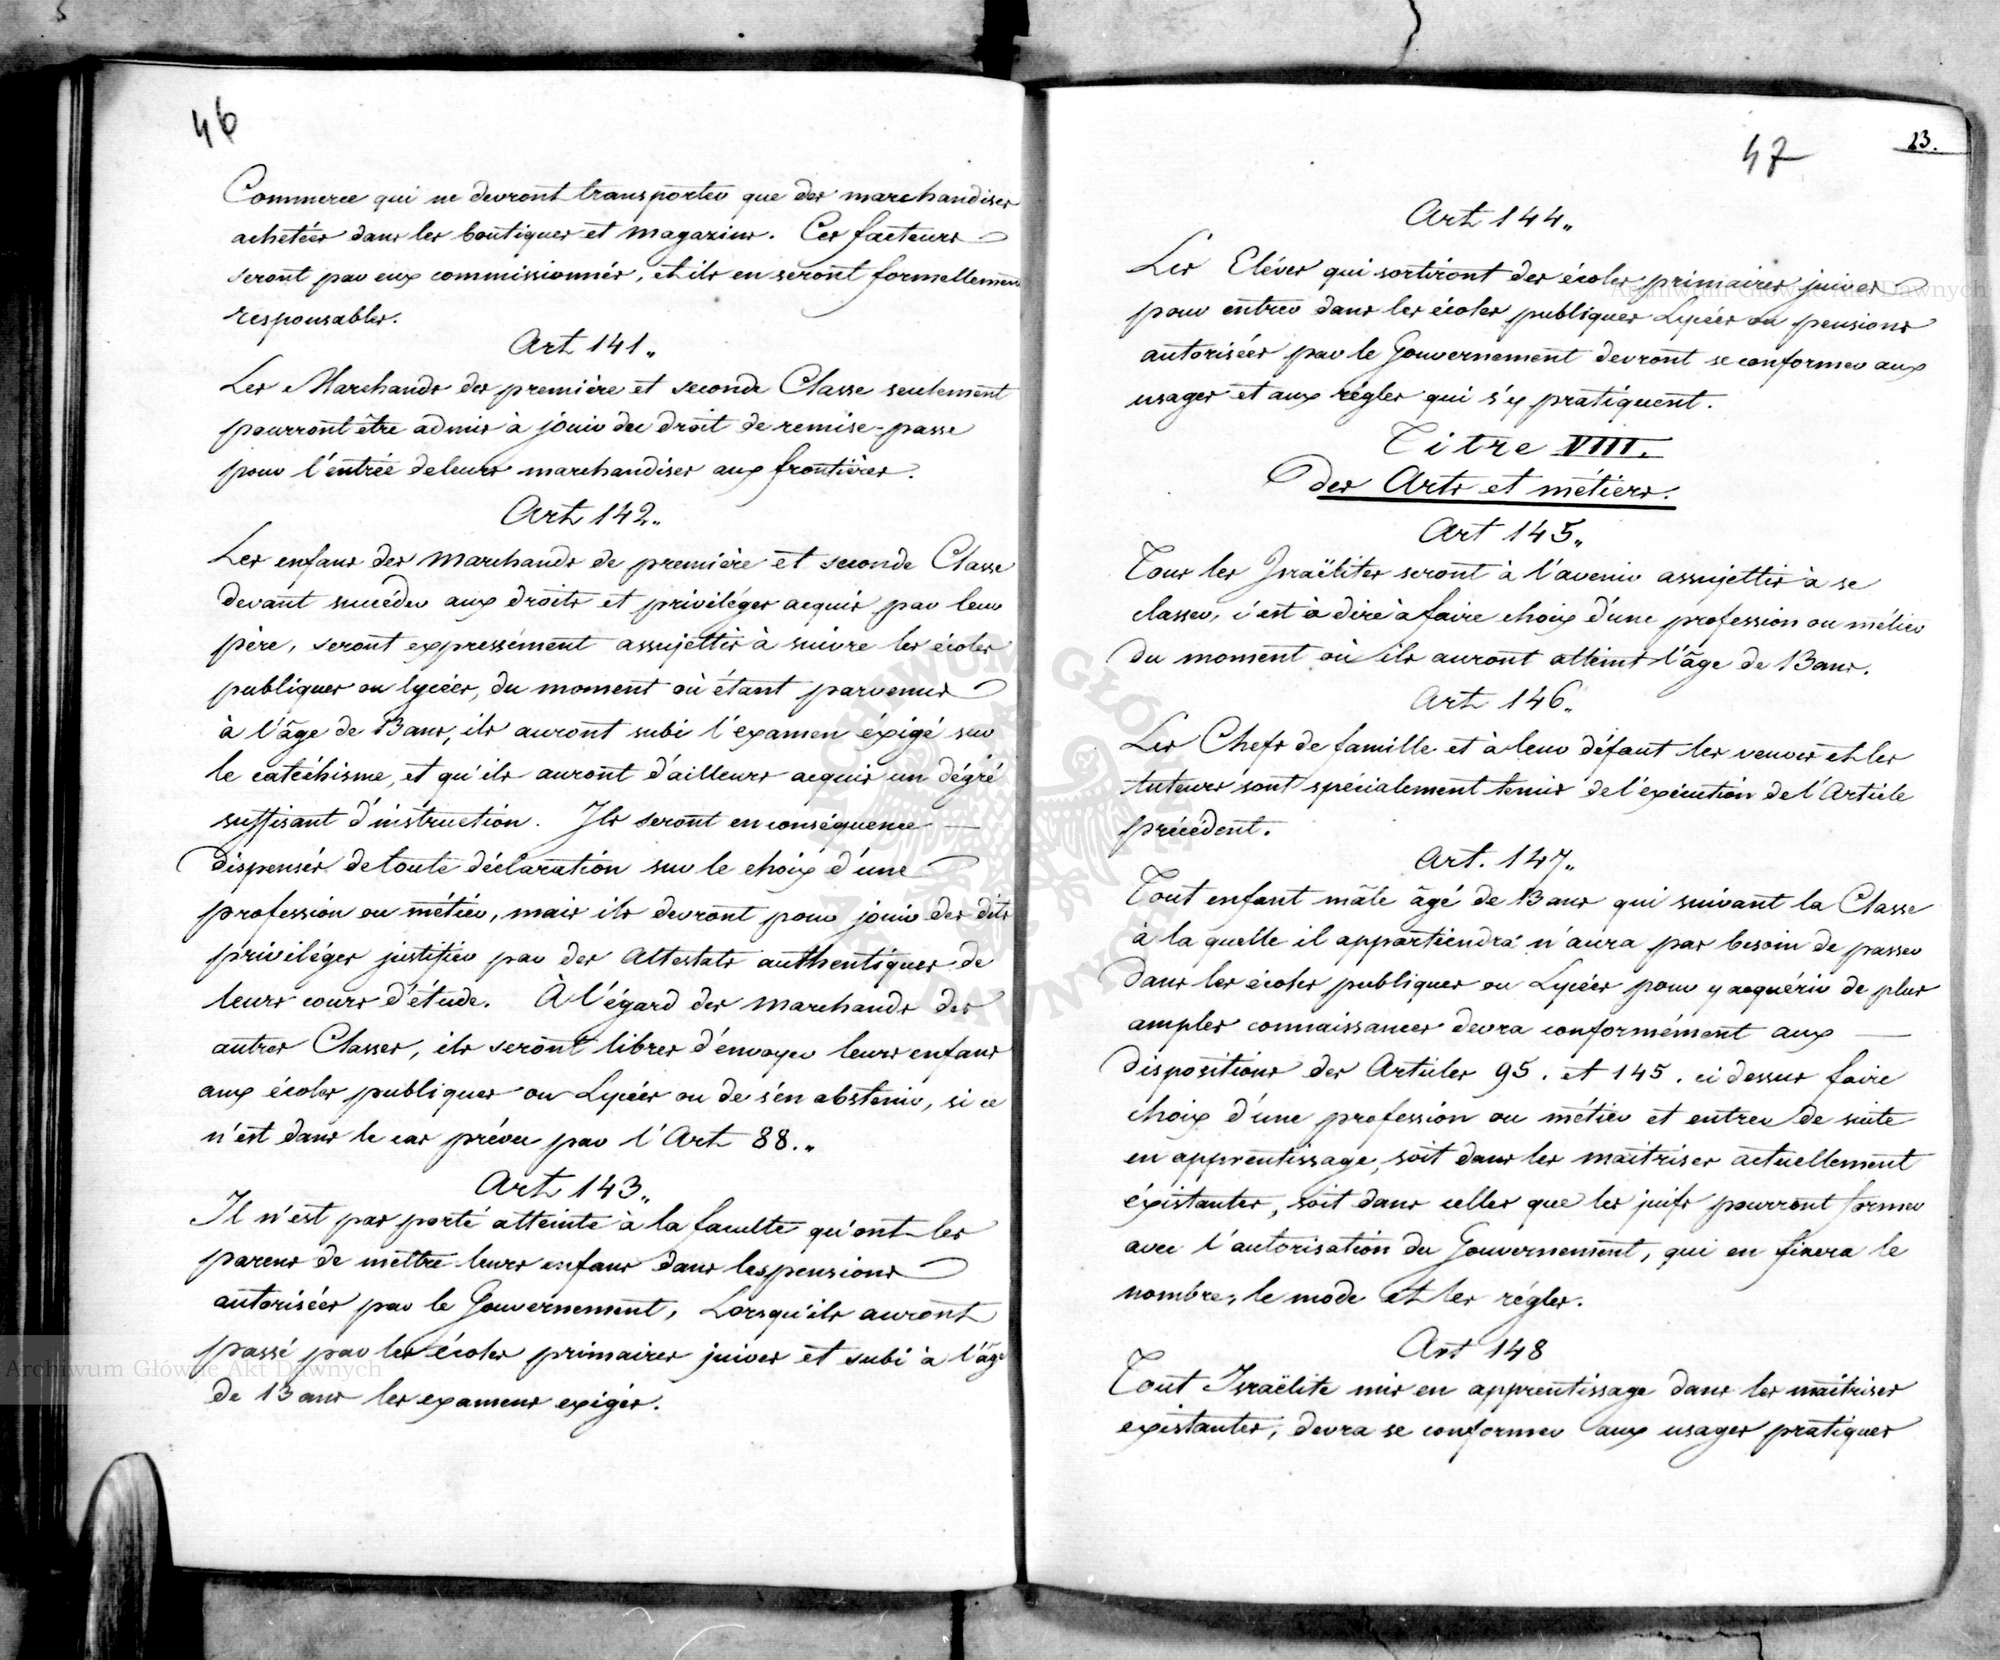 46
Commerce qui ne devront transporter que des marchandises
achetées dans les boutiques et magazins. Ces facteurs
seront par eux commissionnés, et ils en seront formellement
responsables.
Art 141.
Les Marchands des première et seconde Classe seulement
pourront être admis à jouir du droit de remise-passe
pour l'entrée de leurs marchandises aux frontières.
Art 142.
Les enfans des marchands de première et seconde Classe
devant succéder aux droits et priviléges acquis par leur
père, seront expressément assujettis à suivre les écoles
publiques ou lycées, du moment où étant parvenus
à l'âge de 13 ans, ils auront subi l'examen éxigé sur
le catéchisme, et qu'ils auront d'ailleurs acquis un dégré
suffisant d'instruction. Ils seront en conséquence
dispensés de toute déclaration sur le choix d'une
profession ou métier, mais ils devront pour jouir des dits
priviléges justifier par des Attestats authentiques de
leurs cours d'étude. À l'égard des marchands des
autres Classes, ils seront libres d'envoyer leurs enfans
aux écoles publiques ou Lycées ou de s'en abstenir, si ce
n'est dans le cas prévu par l'Art 88.
Art 143.
Il n'est pas porté atteinte à la faculté qu'ont les
parens de mettre leurs enfans dans les pensions
autorisées par le Gouvernement, Lorsqu'ils auront
passé par les écoles primaires juives et subi à l'âge
de 13 ans les examens exigés.
47
23.
Art 144.
Les Eléves qui sortiront des écoles primaires juives
pour entrer dans les écoles publiques Lycées ou pensions
autorisées par le Gouvernement devront se conformer aux
usages et aux régles qui s'y pratiquent.
Titre VIII.
des Arts et métiers.
Art 145.
Tous les Israëlites seront à l'avenir assujettis à se
classer, c'est à dire à faire choix d'une profession ou métier
du moment où ils auront atteint l'âge de 13 ans.
Art 146.
Les Chefs de famille et à leur défaut les veuves et les
tuteurs sont spécialement tenus de l'éxécution de l'Article
précédent.
Art. 147.
Tout enfant mâle âgé de 13 ans qui suivant la Classe
à la quelle il appartiendra n'aura pas besoin de passer
dans les écoles publiques ou Lycées pour y acquérir de plus
amples connaissances devra conformément aux
dispositions des Articles 95. et 145. ci dessus faire
choix d'une profession ou métier et entrer de suite
en apprentissage, soit dans les maitrises actuellement
éxistantes, soit dans celles que les juifs pourront former
avec l'autorisation du Gouvernement, qui en fixera le
nombre, le mode et les régles.
Art 148
Tout Israëlite mis en apprentissage dans les maitrises
existantes, devra se conformer aux usages pratiqués
Archiwum Główne Akt Dawnych
Archiwum Główne Akt Dawnych